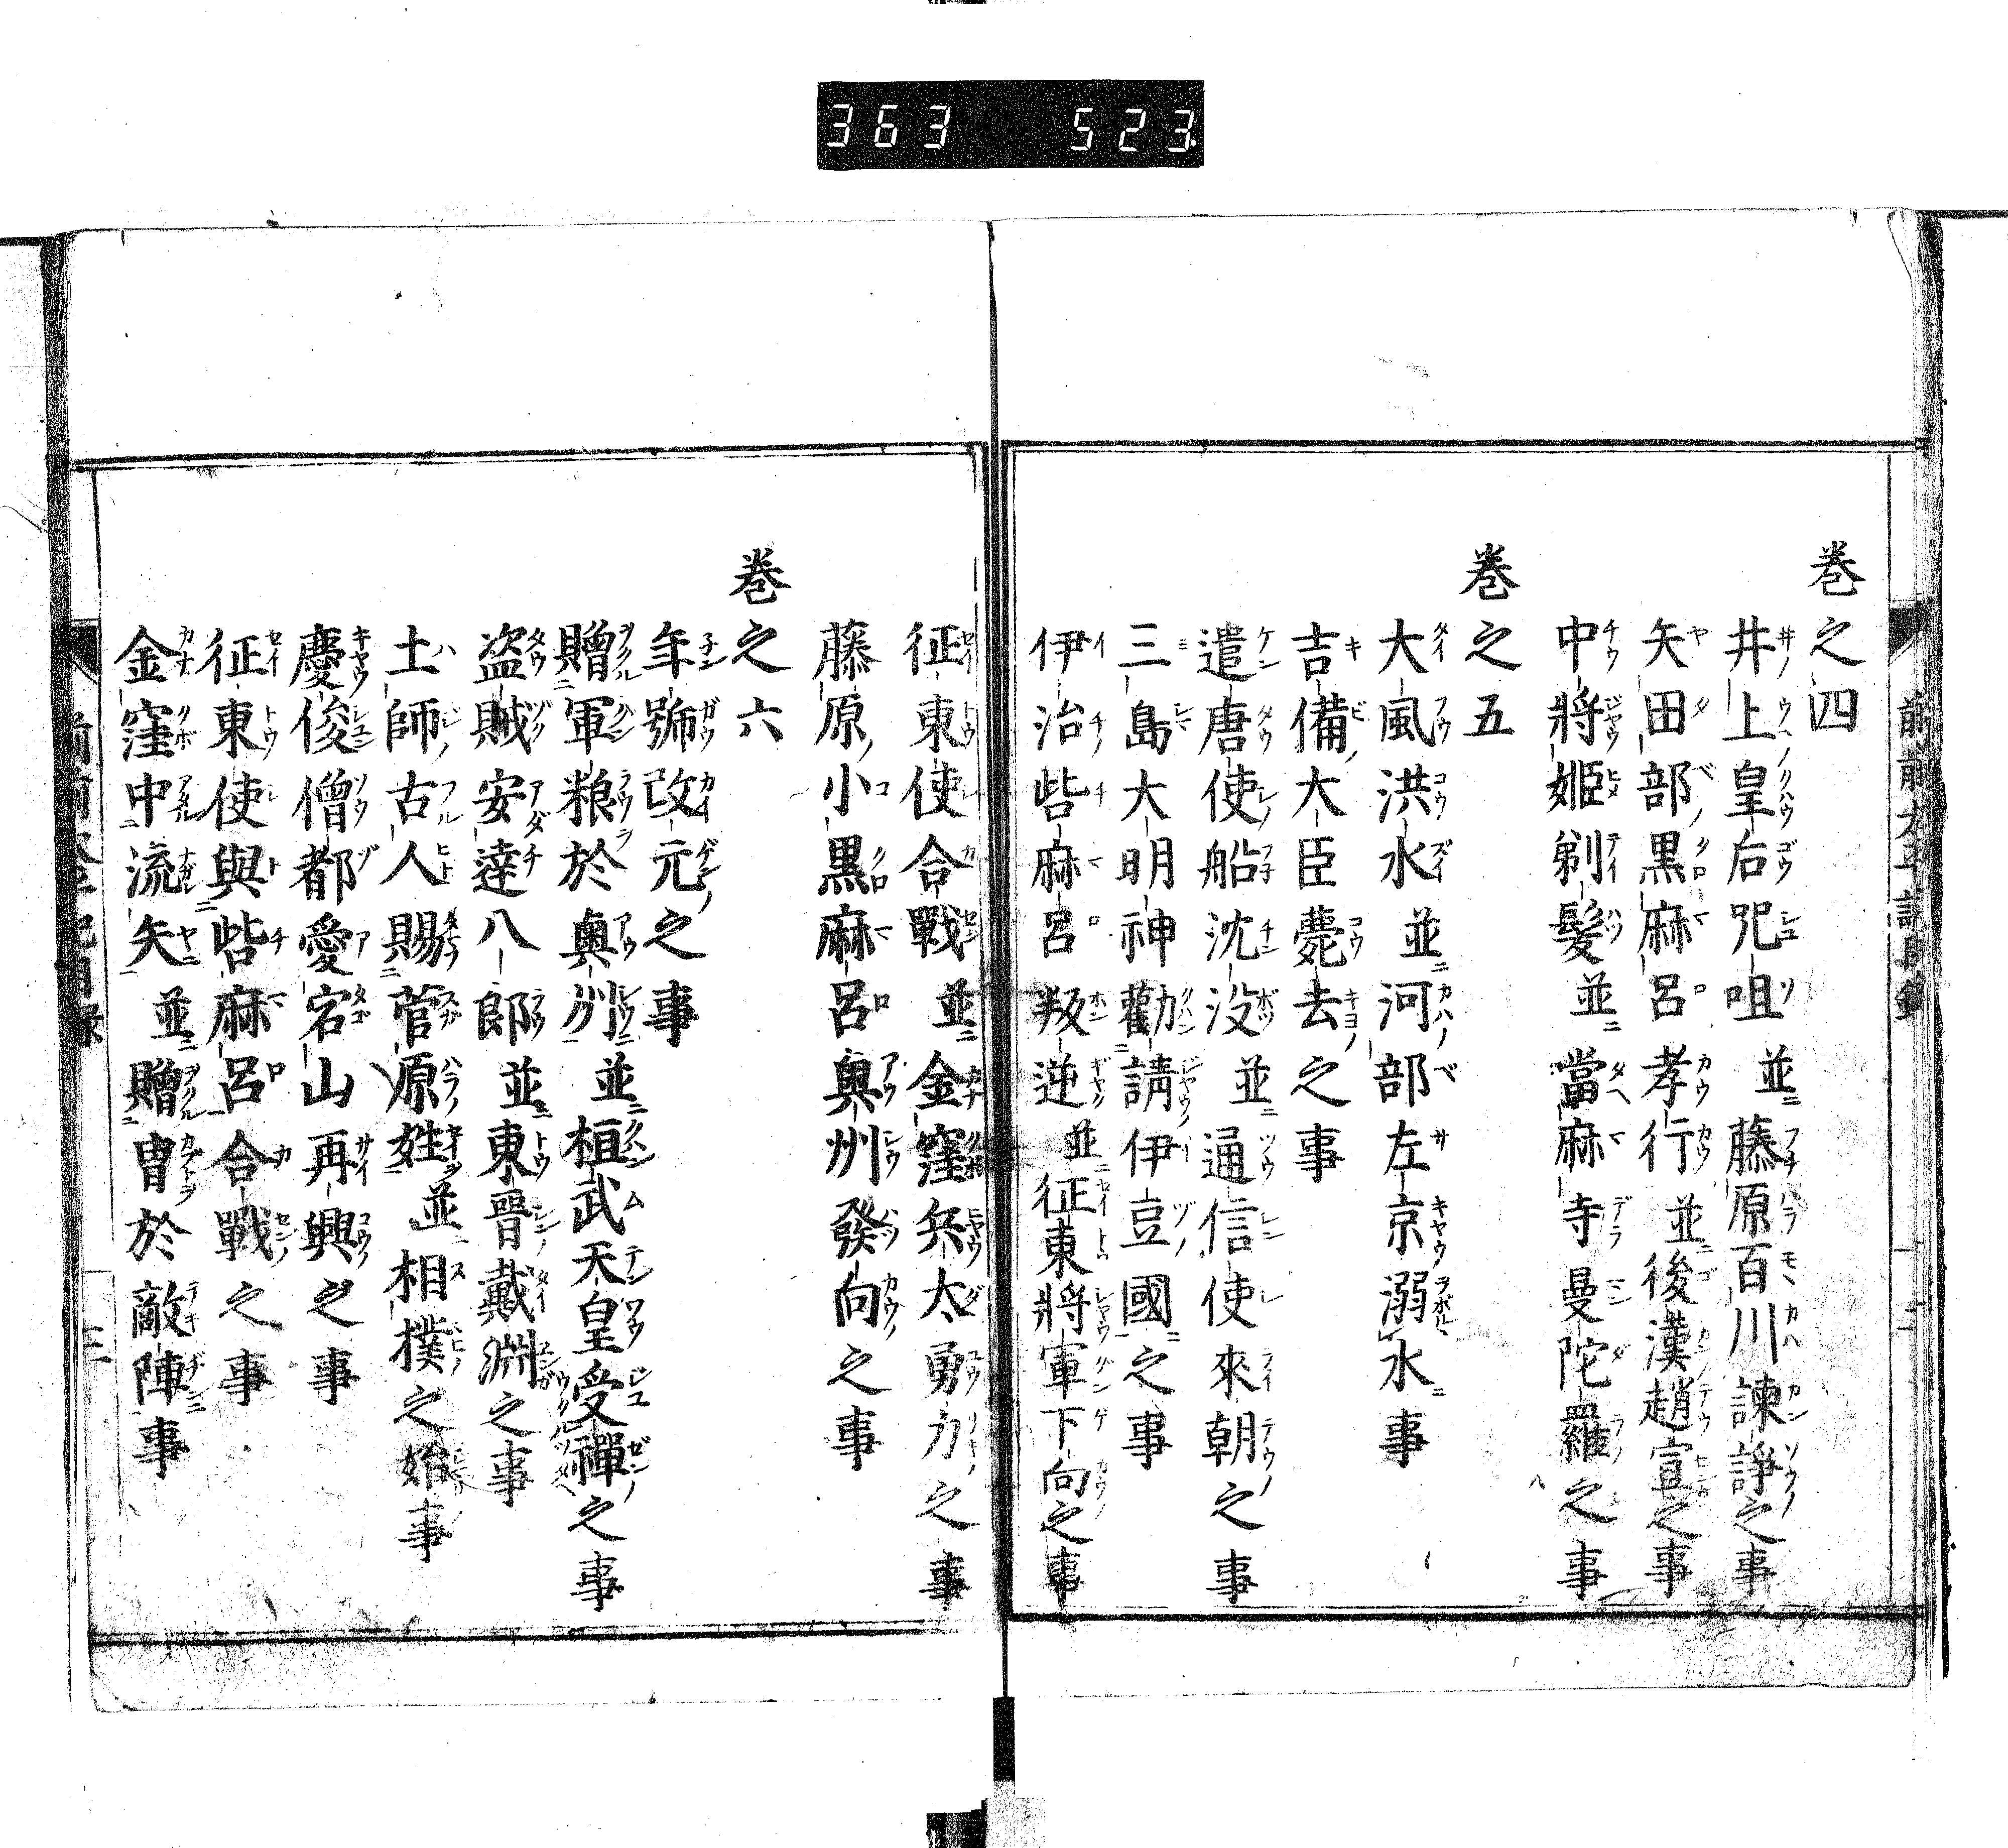 363 523
前前太平記目録
二
巻之四
井上皇后咒咀並藤原百川諫諍之事
矢田部黒麻呂孝行並後漢趙宣之事
中將姫剃髪並當麻寺曼陀羅之事
巻之五
大風洪水並河部左京溺水事
吉備大臣薨去之事
遣唐使船沈没並通信使來朝之事
三島大明神勸請伊豆國之事
伊治呰麻呂叛逆並征東將軍下向之事
征東使合戰並金窪兵太勇力之事
藤原小黒麻呂奥州發向之事
巻之六
年號改元之事
贈軍粮於奥州並桓武天皇受禪之事
盗賊安達八郎並東晉戴淵之事
土師古人賜菅原姓並相撲之始事
慶俊僧都愛宕山再興之事
征東使與呰麻呂合戰之事
金窪中流矢並贈冑於敵陣事
前前太平記目録
三